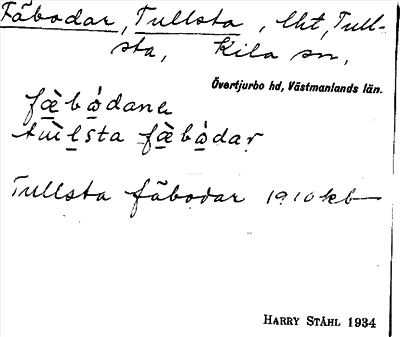 Fäbodar, Tullsta, lht, Tull-
sta, Kila sn,
Övertjurbo hd, Västmanlands län.
Tullsta fäbodar 1910 kb
HARRY STÅHL 1934